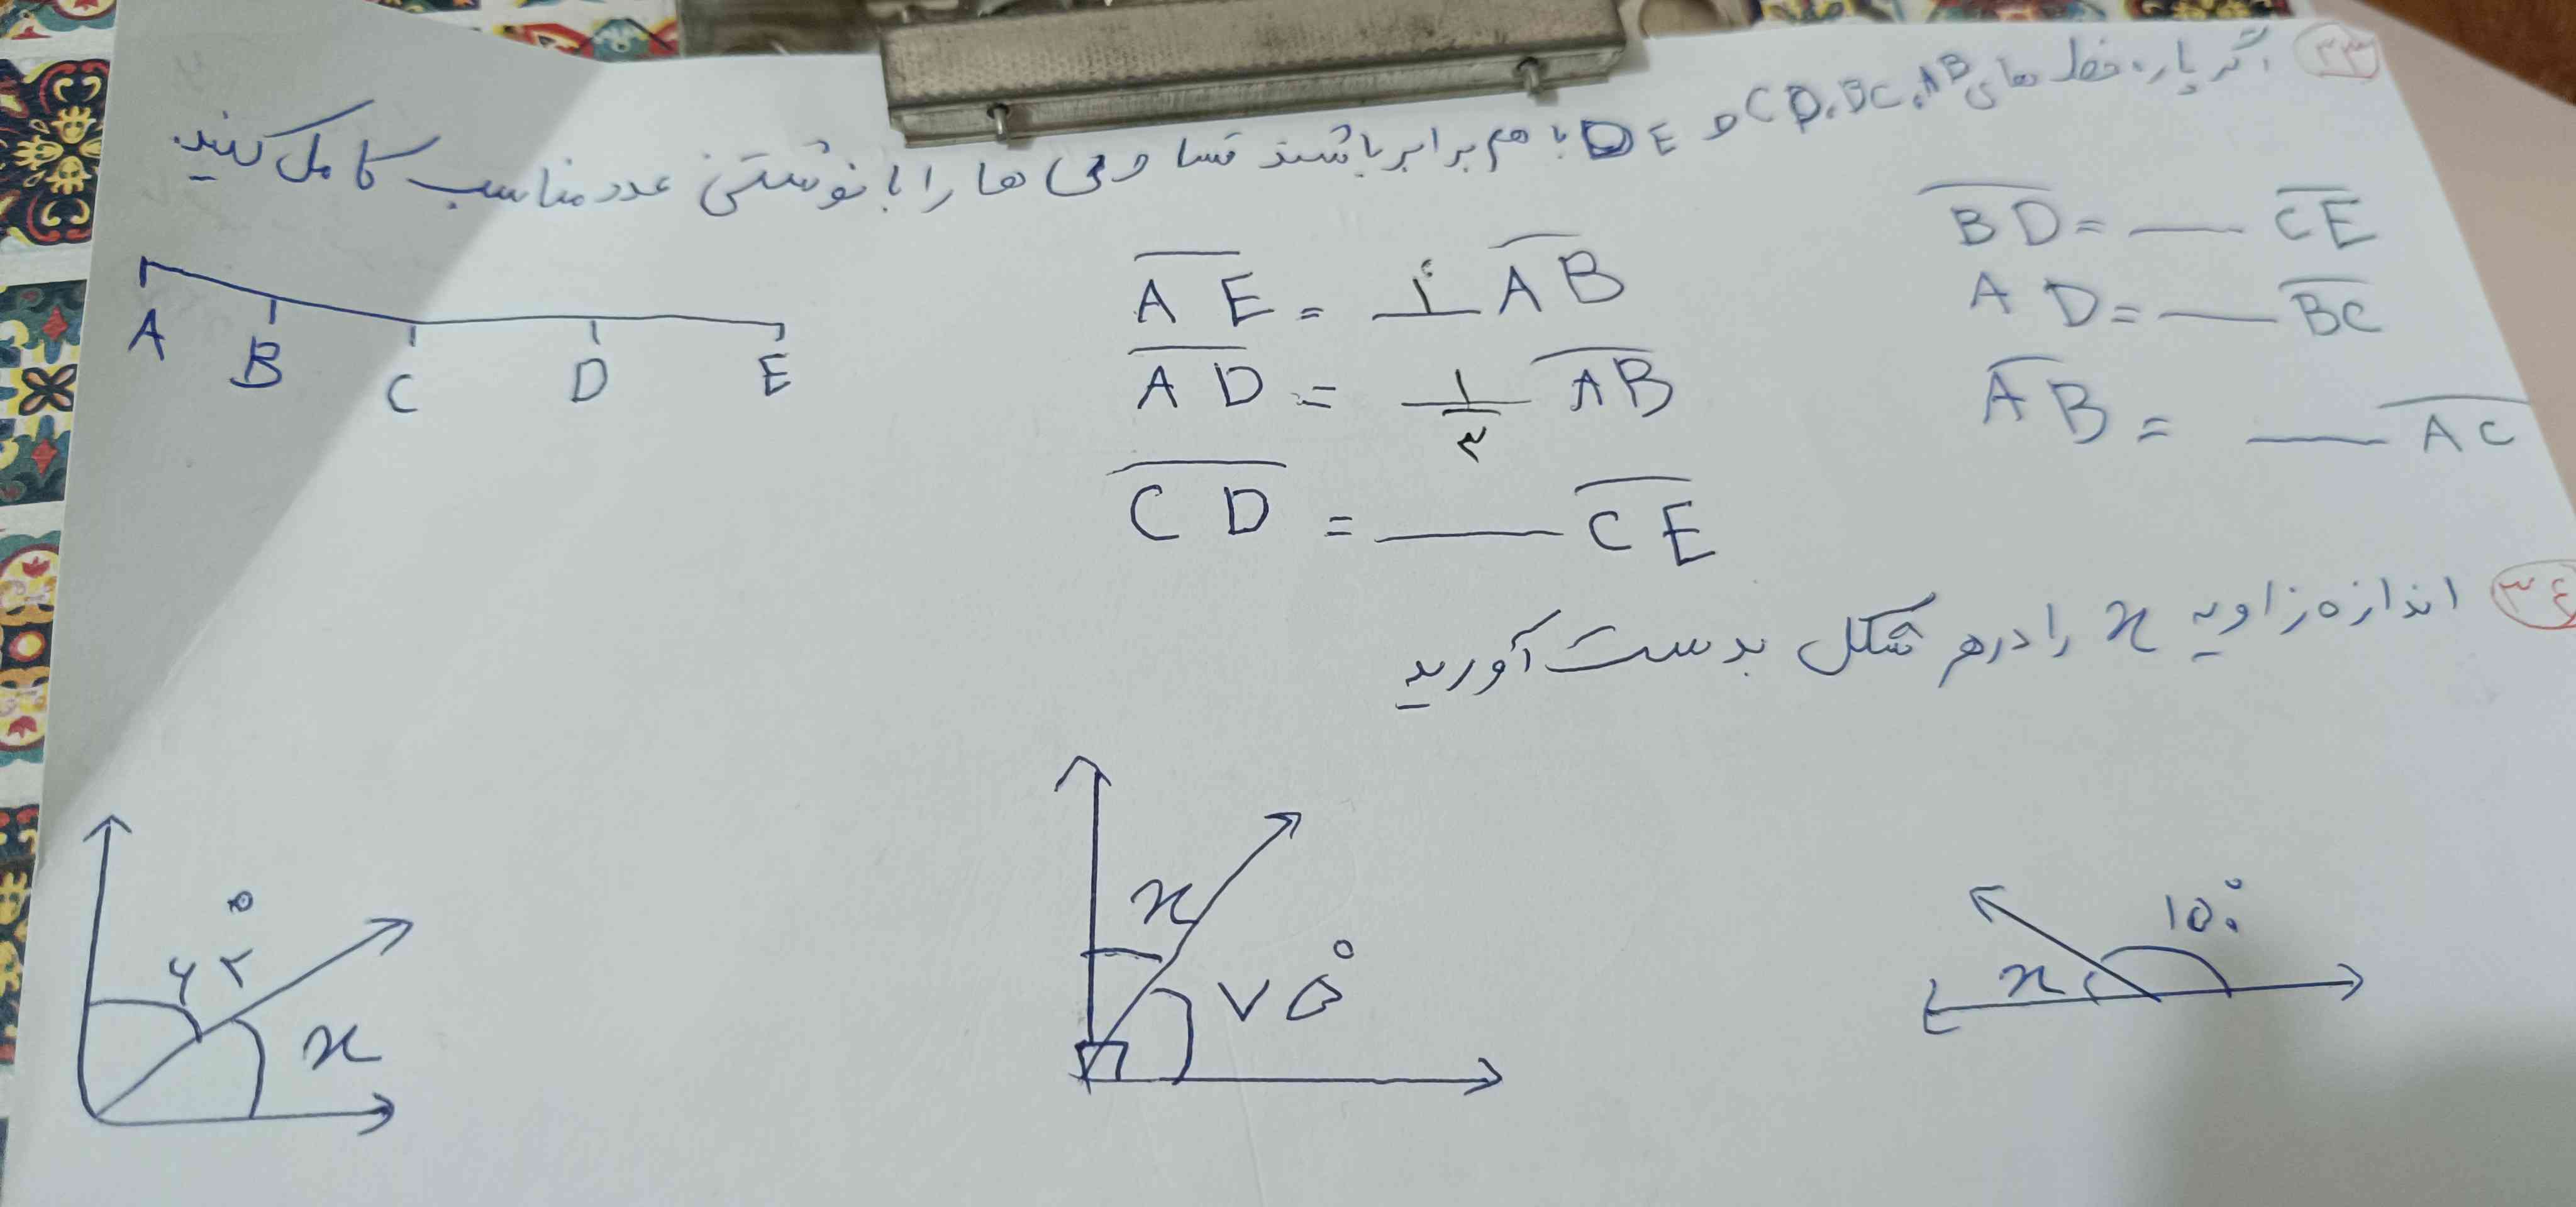 ۳۳ اگر پاره خط های AB، BC، CD و DE با هم برابر باشند تساوی ها را با نوشتن عدد مناسب کامل کنید.
BD = __ CE
AE = __ AB
AD = __ BC
AD = ۱/۳ AB
AB = __ AC
CD = __ CE
A B C D E
۳۴ اندازه زاویه x را در هر شکل بدست آورید
۱۵۰° x
x ۷۵°
۶۲° x